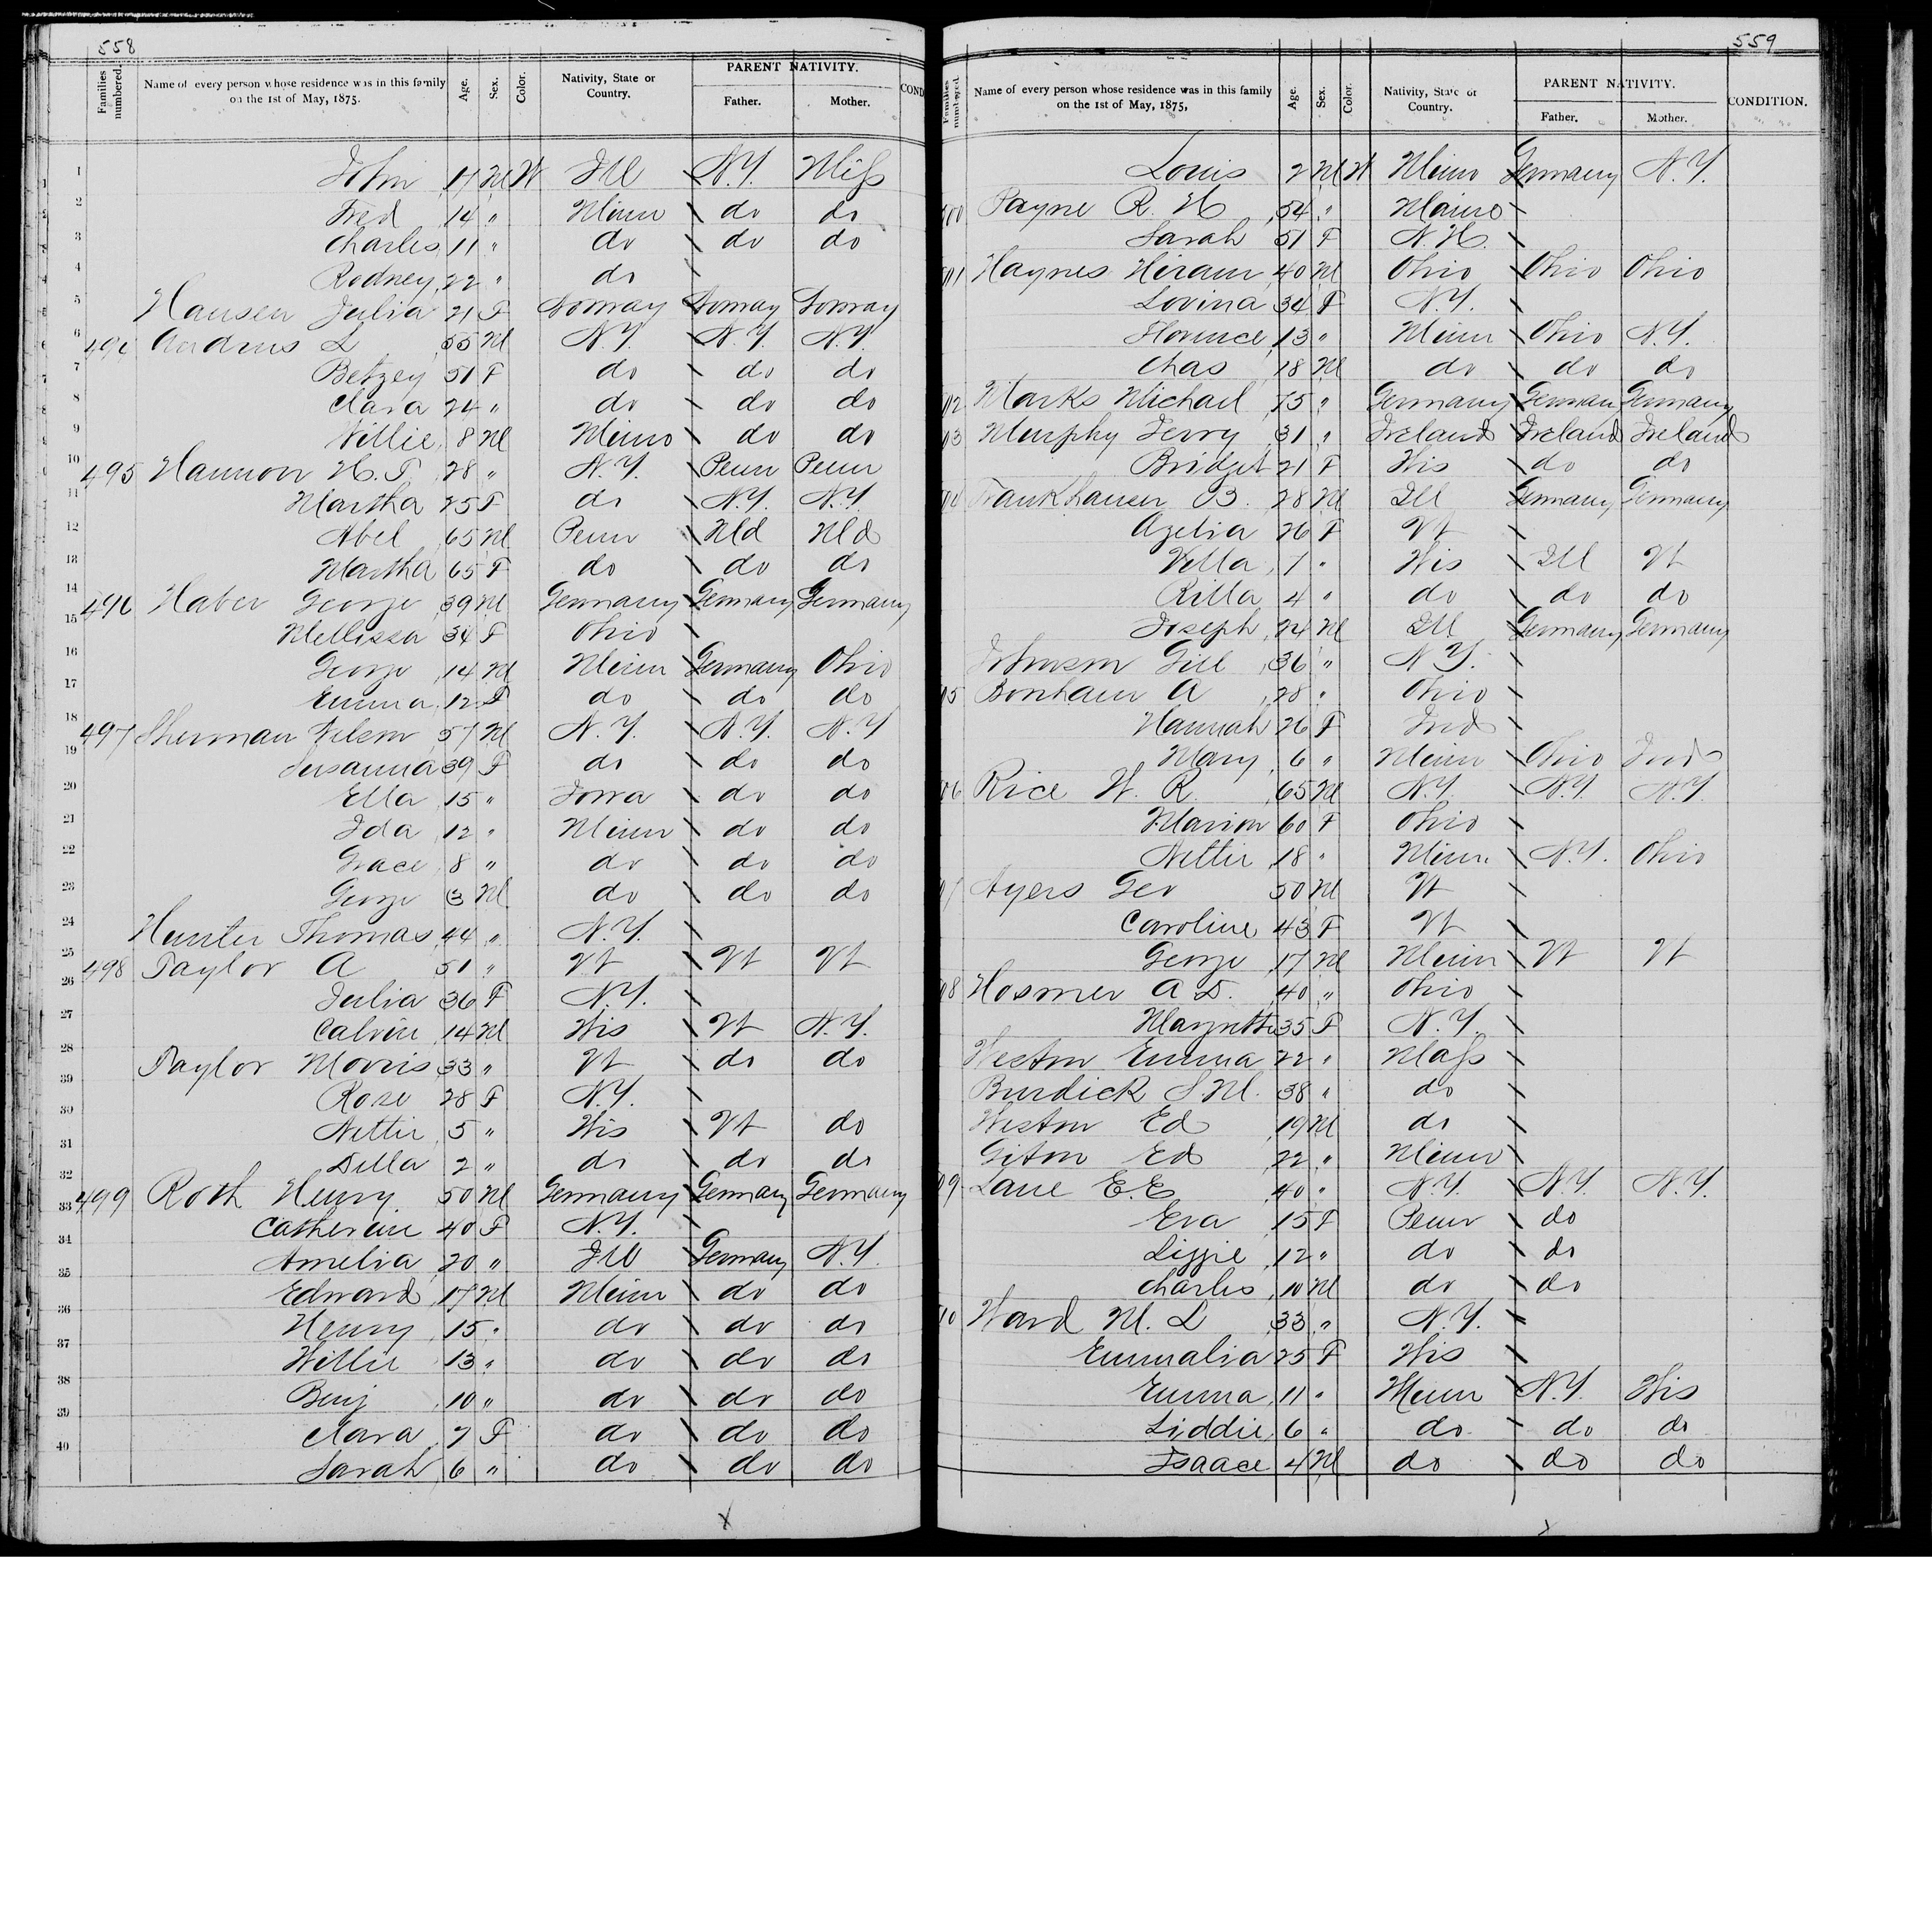 558
Families numbered. Name of every person whose residence was in this family on the 1st of May, 1875. Age. Sex. Color. Nativity, State or Country. PARENT NATIVITY. Father. Mother. COND
1 John 17 M W Ill N.Y. Miss
2 Fred 14 " Minn do do
3 Charles 11 " do do do
4 Rodney 22 " do
5 Hansen Julia 21 F Norway Norway Norway
6 494 Andrus L 55 M N.Y. N.Y. N.Y.
7 Betzey 51 F do do do
8 Clara 24 " do do do
9 Willie 8 M Minn do do
10 495 Hannon H. T. 28 " N.Y. Penn Penn
11 Martha 25 F do N.Y. N.Y.
12 Abel 65 M Penn Md Md
13 Martha 65 F do do do
14 496 Haber George 39 M Germany Germany Germany
15 Mellissa 34 F Ohio
16 George 14 M Minn Germany Ohio
17 Emma 12 F do do do
18 497 Sherman Nelson 57 M N.Y. N.Y. N.Y
19 Susanna 39 F do do do
20 Ella 15 " Iowa do do
21 Ida 12 " Minn do do
22 Grace 8 " do do do
23 George 3 M do do do
24 Hunter Thomas 44 " N.Y.
25 498 Taylor A 51 " Vt Vt Vt
26 Julia 36 F N.Y.
27 Calvin 14 M Wis Vt N.Y.
28 Taylor Morris 33 " Vt do do
39 Rose 28 F N.Y.
30 Nettie 5 " Wis Vt do
31 Della 2 " do do do
32 499 Roth Henry 50 M Germany Germany Germany
33 Catherine 40 F N.Y.
34 Amelia 20 " Ill Germany N.Y.
35 Edward 17 M Minn do do
36 Henry 15 " do do do
37 Willie 13 " do do do
38 Benj 10 " do do do
39 Clara 7 F do do do
40 Sarah 6 " do do do
559
Families numbered. Name of every person whose residence was in this family on the 1st of May, 1875, Age. Sex. Color. Nativity, State or Country. PARENT NATIVITY. Father. Mother. CONDITION.
Louis 2 M W Minn Germany N.Y.
00 Payne R. H 54 " Maine
Sarah 51 F N.H.
01 Haynes Hiram 40 M Ohio Ohio Ohio
Lovina 34 F N.Y.
Florence 13 " Minn Ohio N.Y.
Chas 18 M do do do
02 Marks Michael 75 " Germany German Germany
03 Murphy Jerry 31 " Ireland Ireland Ireland
Bridget 21 F Wis do do
Frankhauser B. 28 M Ill Germany Germany
Azelia 26 F Vt
Vella 7 " Wis Ill Vt
Rilla 4 " do do do
Joseph 24 M Ill Germany Germany
Johnson Gill 36 " N.Y.
05 Bonham A 28 " Ohio
Hannah 26 F Ind
Mary 6 " Minn Ohio Ind
06 Rice W. R 65 M N.Y. N.Y. N.Y.
Marion 60 F Ohio
Nettie 18 " Minn N.Y. Ohio
07 Ayers Geo 50 M Vt
Caroline 43 F Vt
George 17 M Minn Vt Vt
08 Hosmer A D. 40 " Ohio
35 F N.Y.
Weston Emma 22 " Mass
Burdick S.M. 38 " do
Weston Ed 19 M do
Giton Ed 22 " Minn
09 Lane E.E 40 " N.Y. N.Y. N.Y.
Eva 15 F Penn do
Lizzie 12 " do do
Charles 10 M do do
10 Ward M. L 33 " N.Y.
Emmalia 25 F Wis
Emma 11 " Minn N.Y. Wis
Liddie 6 " do do do
Isaace 4 M do do do